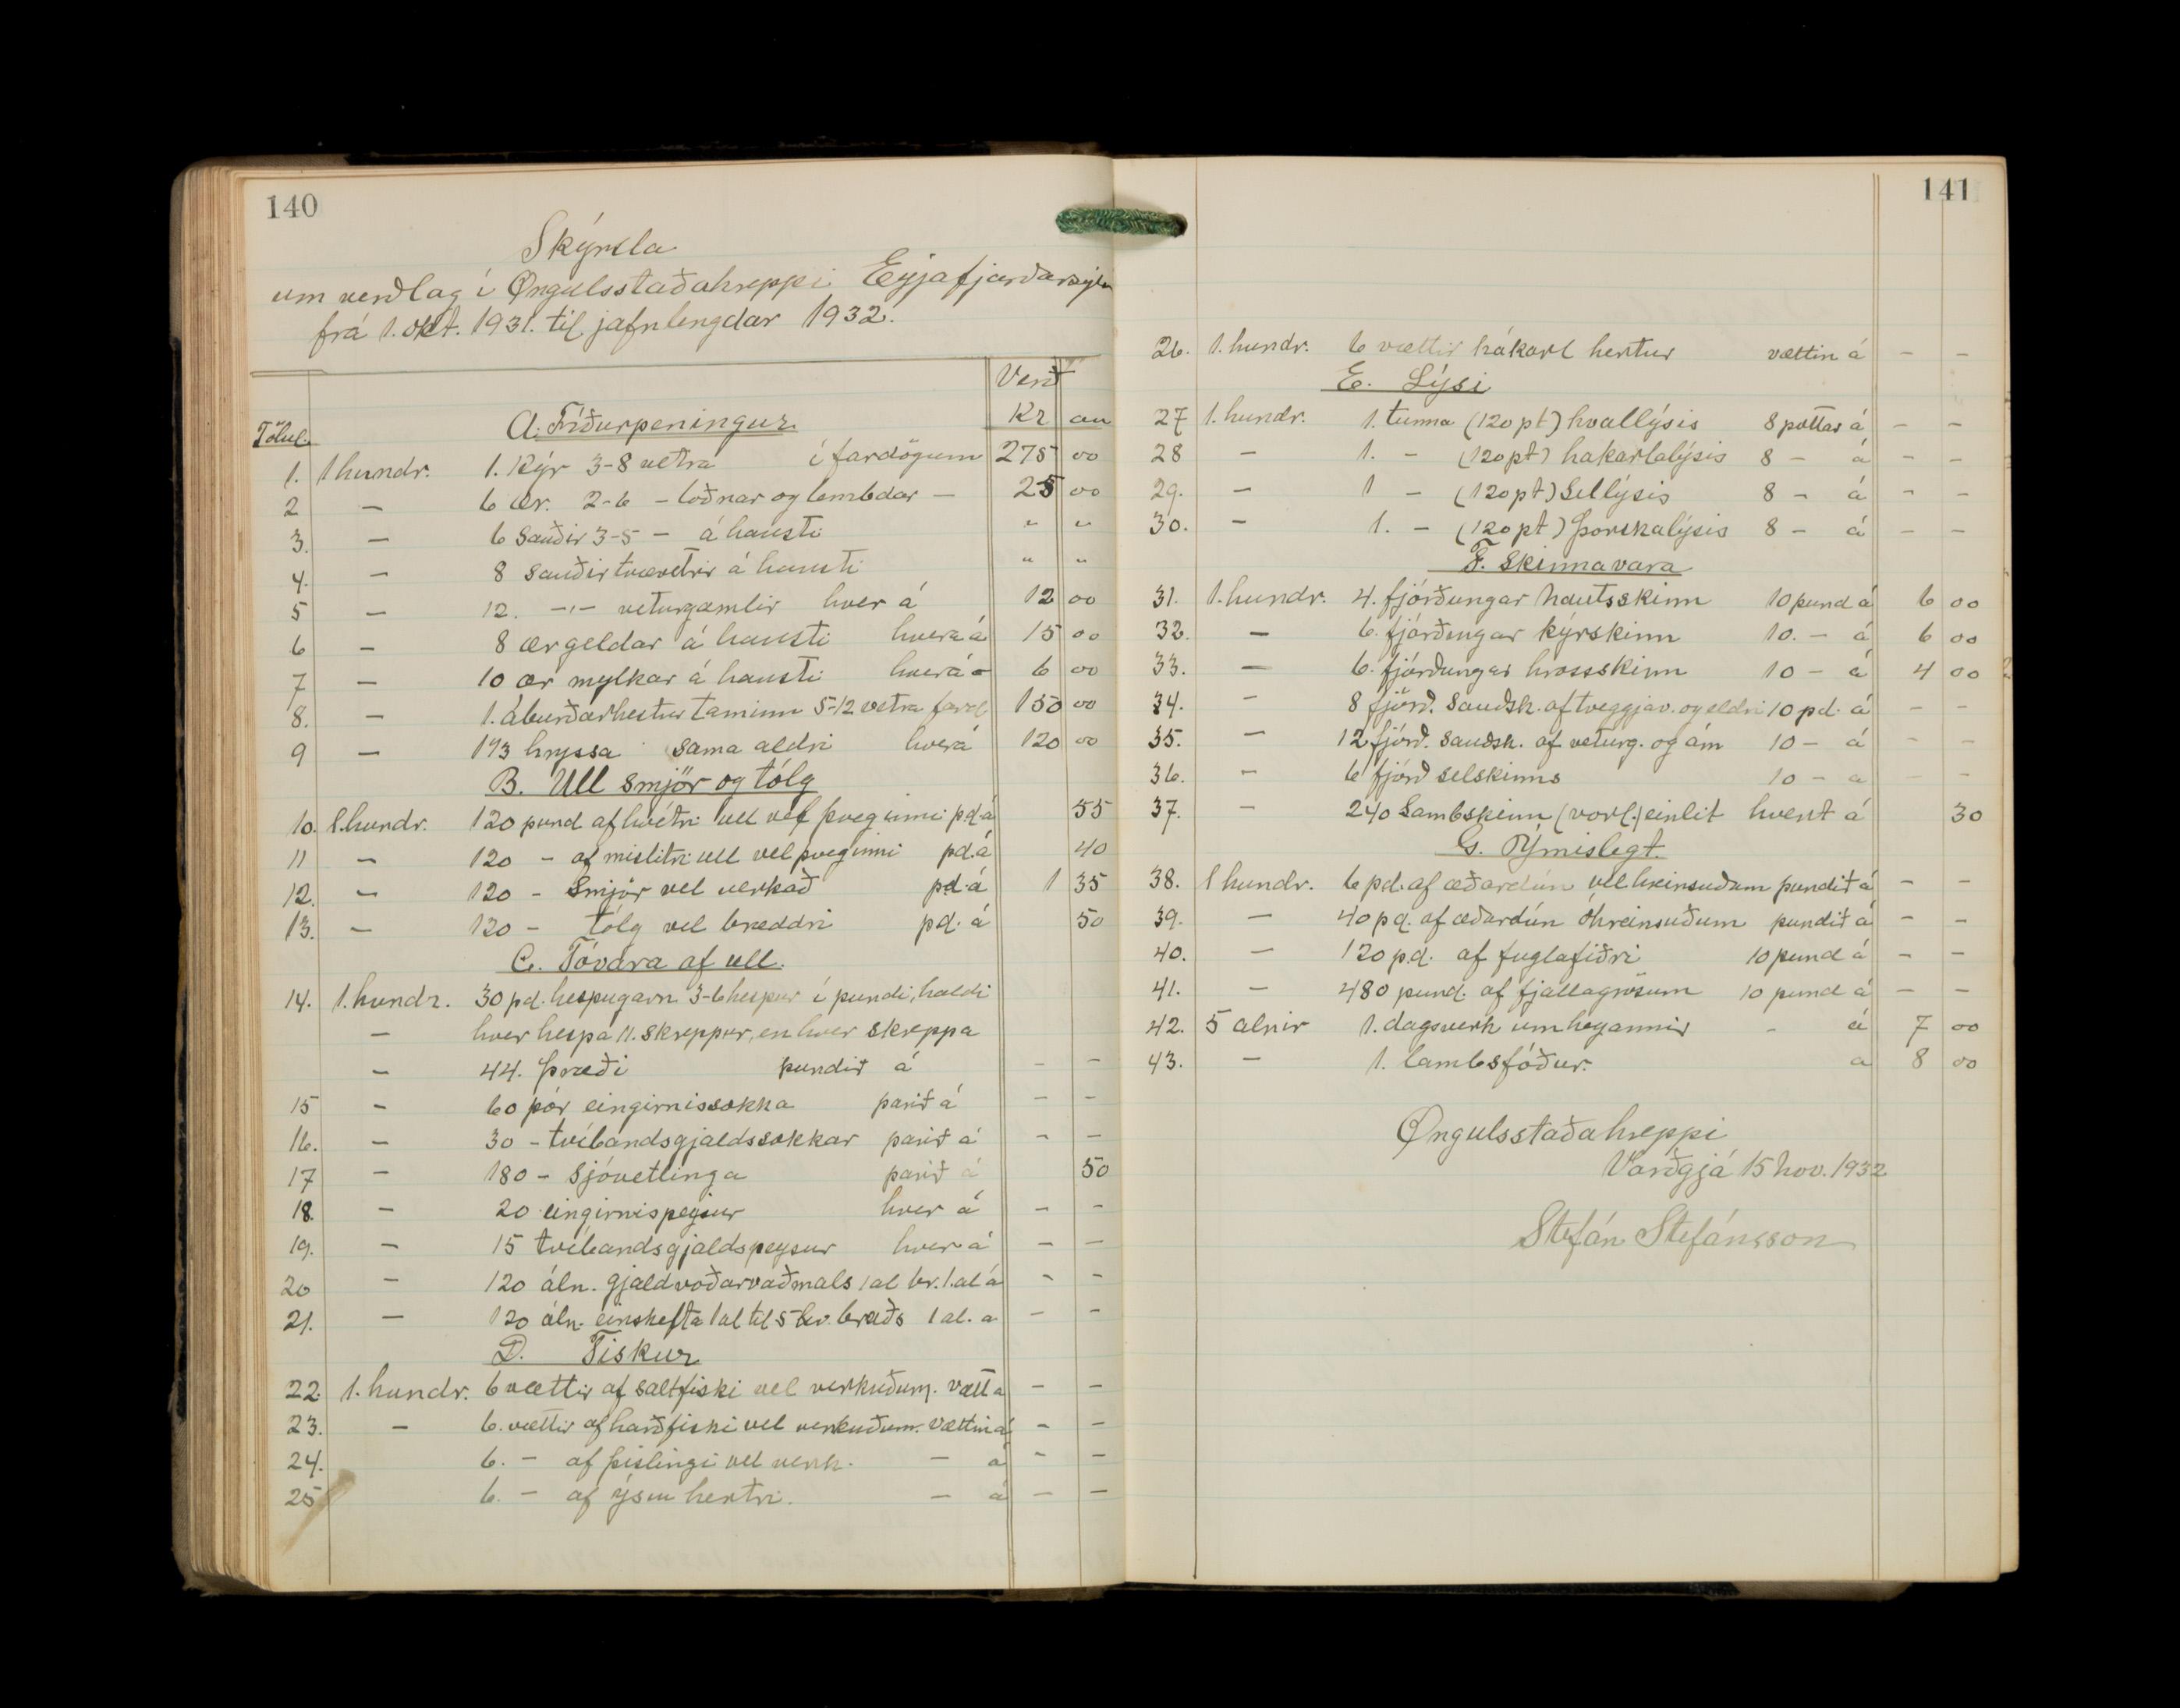 140
Skýrsla
um verðlag í Öngulsstaðahreppi Eyjafjarðarsýslu
frá 1. okt. 1931. til jafnlengdar 1932.
Verð
Tölul. A. Fríðurpeningur Kr au
1. 1 hundr. 1. Kýr 3-8 vetra í fardögum 275 00
2 — 6 ær. 2-6 - loðnar og lembdar — 25 00
3. — 6 Sauðir 3-5 - á hausti " "
4. — 8 sauðir tvævetrir á hausti " "
5 — 12. -"- veturgamlir hver á 12 00
6 — 8 ær geldar á hausti hver á 15 00
7 — 10 ær mylkar á hausti hver á 6 00
8. — 1. áburðarhestur taminn 5-12 vetra fard 150 00
9 — 1 1/3 hryssa sama aldri hver á 120 00
B. Ull smjör og tólg
10. 1. hundr. 120 pund af hvítri ull vel þveginni pd. á 55
11 — 120 - af mislitri ull vel þveginni pd. á 40
12. — 120 - Smjör vel verkað pd. á 1 35
13. — 120 - tólg vel bræddri pd. á 50
C. Tóvara af ull.
14. 1. hundr. 30 pd. hespugarn 3-6 hespur í pundi, haldi
— hver hespa 11. skreppur, en hver skreppa
— 44. þræði pundið á - -
15 — 60 pör eingirnissokka parið á - -
16. — 30 - tvíbandsgjaldssokkar parið á - -
17 — 180 - sjóvetlinga parið á 50
18. — 20 eingirnispeysur hver á - -
19. — 15 tvíbandsgjaldspeysur hver á - -
20 — 120 áln. gjaldvoðarvaðmals 1 al br. 1. al á - -
21. — 120 áln. einskefta 1 al til 5 kv. braðs 1 al. a - -
D. Fiskur
22. 1. hundr. 6 vættir af saltfiski vel verkuðum. vætt a - -
23. — 6. vættir af harðfiski vel verkuðum. Vættin á - -
24. 6. - af þislingi vel verk. — á - -
25 6. - af ýsu hertri. — á - -
141
26. 1. hundr. 6 vættir hákarl hertur vættin á - -
E. Lýsi
27 1. hundr. 1. tunna (120 pt) hvallýsis 8 pottar á - -
28 — 1. - (120 pt) hakarlalýsis 8 - á - -
29. — 1 - (120 pt) Sellýsis 8 - á - -
30. — 1. - (120 pt) Þorskalýsis 8 - á - -
F. Skinnavara
31. 1. hundr. 4. fjórðungar nautsskinn 10 pund á 6 00
32. — 6. fjórðungar kýrskinn 10. - á 6 00
33. — 6. fjórðungar hrossskinn 10 - á 4 00
34. — 8 fjórð. Sauðsk. af tveggja v. og eldri 10 pd. á - -
35. — 12 fjórð. sauðsk. af veturg. og ám 10 - á - -
36. — 6 fjórð selskinns 10 - a - -
37. — 240 Lambskinn (vorl.) einlit hvert á 30
G. Ýmislegt.
38. 1 hundr. 6 pd. af æðardún vel hreinsuðum pundið á - -
39. — 40 pd. af æðardún óhreinsuðum pundið á - -
40. — 120 pd. af fuglafiðri 10 pund á - -
41. — 480 pund. af fjallagrösum 10 pund á - -
42. 5 alnir 1. dagsverk um heyannir - á 7 00
43. — 1. lambsfóður. a 8 00
Öngulsstaðahreppi
Varðgjá 15 nov. 1932
Stefán Stefánsson